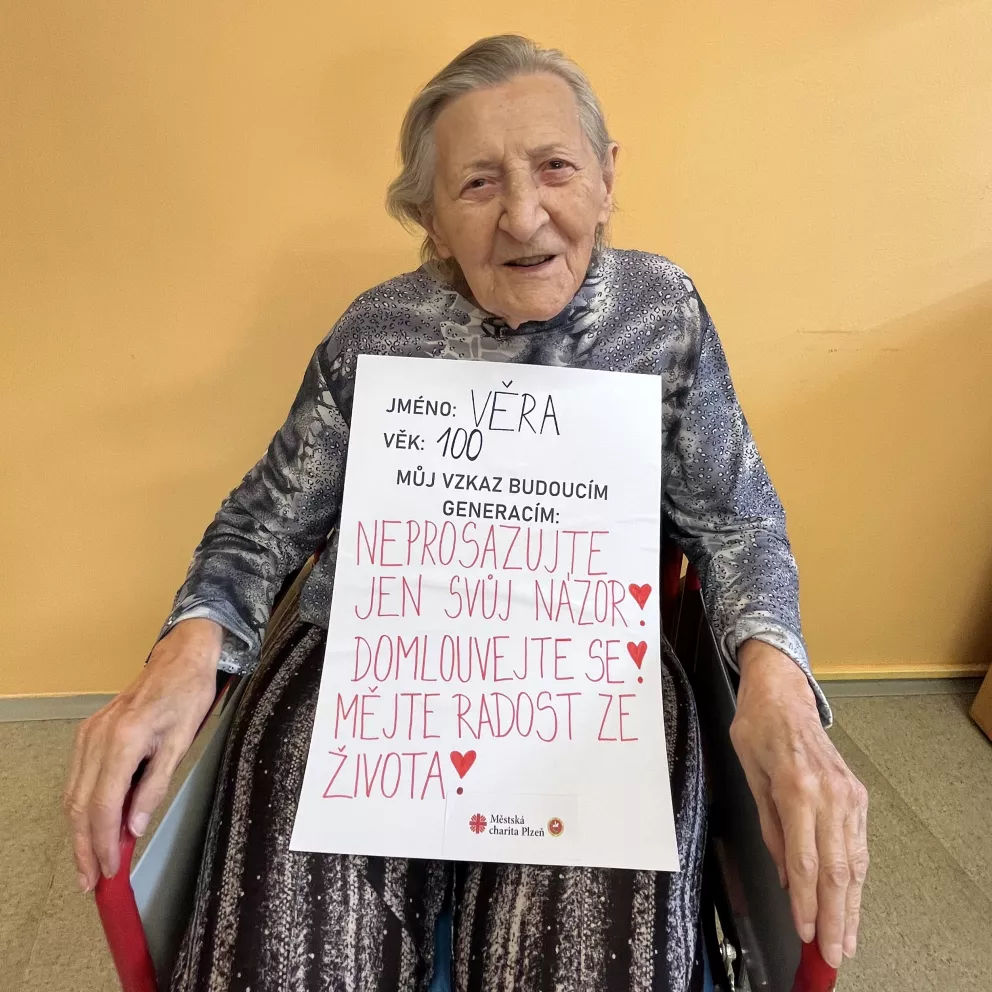 JMÉNO: VĚRA
VĚK: 100
MŮJ VZKAZ BUDOUCÍM
GENERACÍM:
NEPROSAZUJTE
JEN SVŮJ NÁZOR!
DOMLOUVEJTE SE!
MĚJTE RADOST ZE
ŽIVOTA!
Městská
charita Plzeň